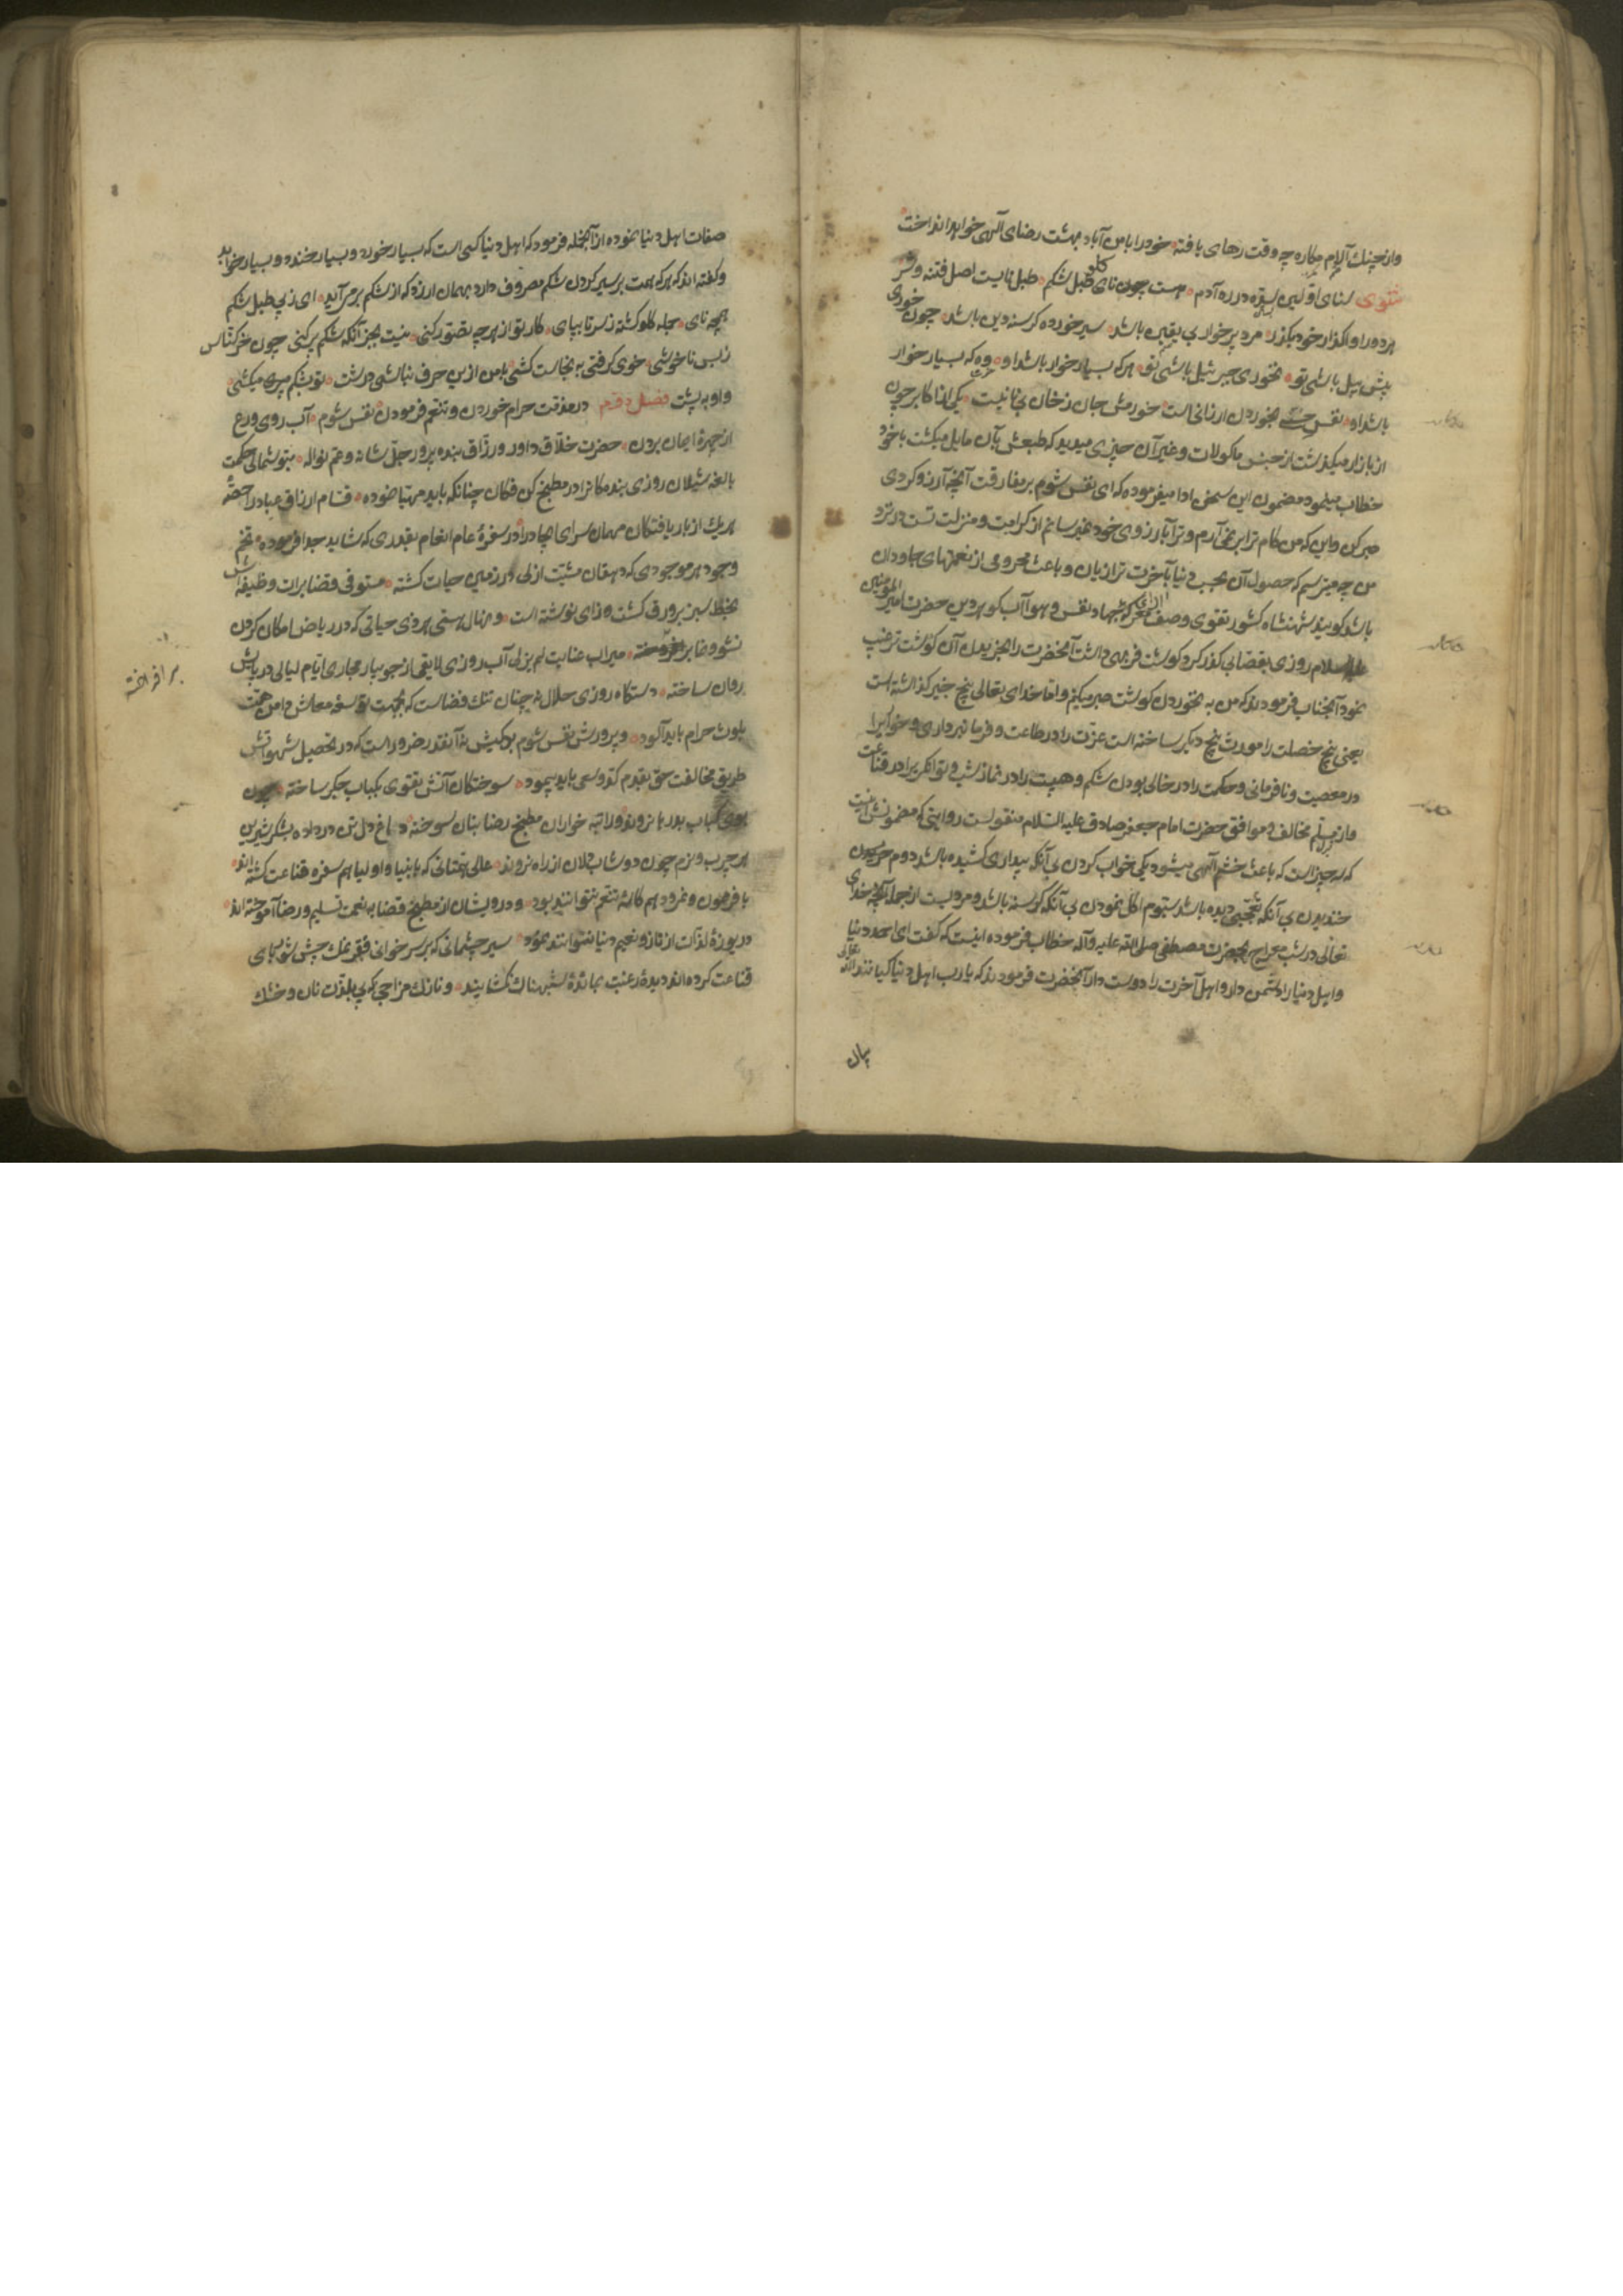 واز چنك آلام مكاره چه وقت رهاى يافته خود را بامن آباد بهشت رضاى آلهى خواهد انداخت
مثنوى سناى اولين سفره در ره آدم هست چون ناى كلو طبل شكم طبل نايست اصل فتنه وشر
هر دو را واكذار خود بكذر مرد پر خوار بى يقين باشد سير خورده كرسنه دين باشد چون خورى
پيش پيل باشى تو نخورى جبرئيل باشى تو هر كه بسيار خوار باشد او كه بسيار خوار
باشد او نفس بخوردن ارزانى است خورمش جان ز خان بى نانيست يكى از اكابر چون
از بازار ميكذشت از جنس ماكولات وغير آن چيزى ميديد كه طبعش بآن مايل ميكشت باخود
خطاب مينمود مضمون اين سخن ادا ميفرموده كه اى نفس شوم بر مفارقت آنچه آرزو كردى
صبر كن واين كه من كام ترا بر نمى آرم وترا بآرزوى خود نميرسانم از كرامت ومنزلت تست در نزد
من چه ميترسم كه حصول آن بحسب دنيا بآخرت ترا زيان وباعث محرومى از نعمتهاى جاودان
باشد كويند شهنشاه كشور تقوى وصف جهاد نفس وهوا آب كوهر دين حضرت امير المومنين
عليه السلام روزى بقصابى كذر كرد كوشت فربهى داشت آنحضرت را بخريدن آن كوشت ترغيب
نمود آنجناب فرمودند كه من به نخوردن كوشت صبر ميكنم واما خداى تعالى پنج چيز كذاشته است
يعنى پنج خصلت را مورث پنج ديكر ساخته است عزت را در طاعت وفرمانبردارى وخوارى را
در معصيت ونافرمانى وحكمت را در خالى بودن شكم وهيبت را در نماز شب وتوانكرى را در قناعت
واز مخالف وموافق حضرت امام جعفر صادق عليه السلام منقولست روايتى كه مضمونش اينست
كه سه چيز است كه باعث خشم آلهى ميشود يكى خواب كردن بى آنكه بيدارى كشيده باشد دوم
خنديدن بى آنكه تعجبى ديده باشد سيوم اكل نمودن بى آنكه كرسنه باشد ومرويست از جمله آنچه خداى
تعالى در شب معراج بحضرت مصطفى صلى الله عليه وآله خطاب فرموده اينست كه كفت اى احمد دنيا
واهل دنيا را دشمن دار واهل آخرت را دوست دار آنحضرت فرمودند كه يا رب اهل دنيا كيانند الله تعالى
صفات اهل دنيا نموده از آنجمله فرمود كه اهل دنيا كسى است كه بسيار خورد وبسيار خندد وبسيار خوابد
وكفته اند كه هر كه همت بر سير كردن شكم مصروف دارد بهمان ارزد كه از شكم برمى آيد اى زپى طبل شكم
همچو ناى جمله كلو كشته ز سر تا بپاى كار تو از هر چه تصور كنى نيست بجز آنكه شكم پر كنى چون خر كناس
ز بس ناخوشى خوى كرفتى به نجاست كشى با من ازين حرف نباشى درشت تو بشكم ميكشى
واو به پشت فصل دوم در مذمت حرام خوردن وتنعم فرمودن نفس شوم آب روى ورع
از چهره ايمان بردن حضرت خلاق داور ورزاق بنده پرور جل شانه وعم نواله
بالغه شيلان روزى بندكانرا در مطبخ كن فكان چنانكه بايد مهيا نموده قسام ارزاق عباد را حصه
هر يك از بار يافتكان مهمان سراى ايجاد را در سفره عام انعام بقدرى كه شايد جدا فرموده تخم
وجود هر موجودى كه دهقان مشيت ازلى در زمين حيات كشته مستوفى قضا برات وظيفه اش
بخط سبز بر ورق كشت وزاى نوشته است ونهال هستى هر ذى حياتى كه در رياض امكان كردن
نشو ونما بر افراخته ميراب عنايت لم يزلى آب روزى لايقى از جويبار مجارى ايام ليالى در پايش
روان ساخته دستكاه روزى حلال نه چنان تنك فضاست كه بجهت توسعه معاش دامن همت
بلوث حرام بايد آلود وپرورش نفس شوم بدكيش نه آنقدر ضرور است كه در تحصيل شهواتش
طريق مخالفت حق بقدم كد وسعى بايد پيمود سوختكان آتش تقوى بكباب جكر ساخته چون
بوى كباب بدرها نروند وراتبه خواران مطبخ رضا بنان سوخته داغ دل تن در داده بشكر شيرين
هر چرب ونرم چون دوشاب دلان از راه نروند عالى همتانى كه با انبيا واوليا هم سفره قناعت كشته اند
با فرعون ونمرود هم كاسه تنعم نتوانند بود ودرويشان از مطبخ قضا به نعمت تسليم ورضا آموخته اند
دريوزه لذات از ناز ونعيم دنيا نتوانند نمود سير چشمانى كه بر سر خوانى فقر نمك چش شورباى
قناعت كرده اند ديده رغبت بمائده شبهه ناك نكشايند ونازك مزاجى كه پى بلذت نان وخشك
بيان
بر افراخته